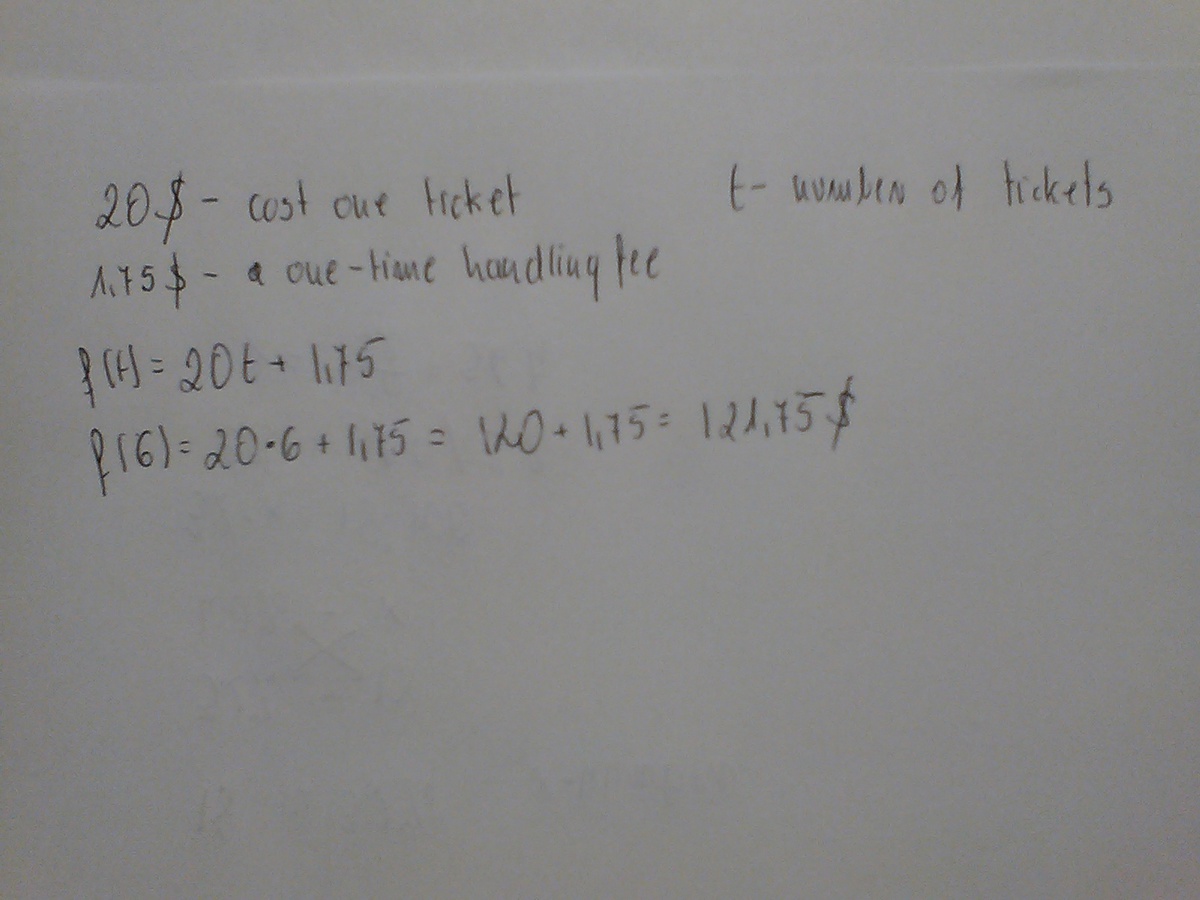 20$ - cost one ticket
t - number of tickets
1,75$ - a one-time handling fee
f(t) = 20t + 1,75
f(6) = 20·6 + 1,75 = 120 + 1,75 = 121,75$